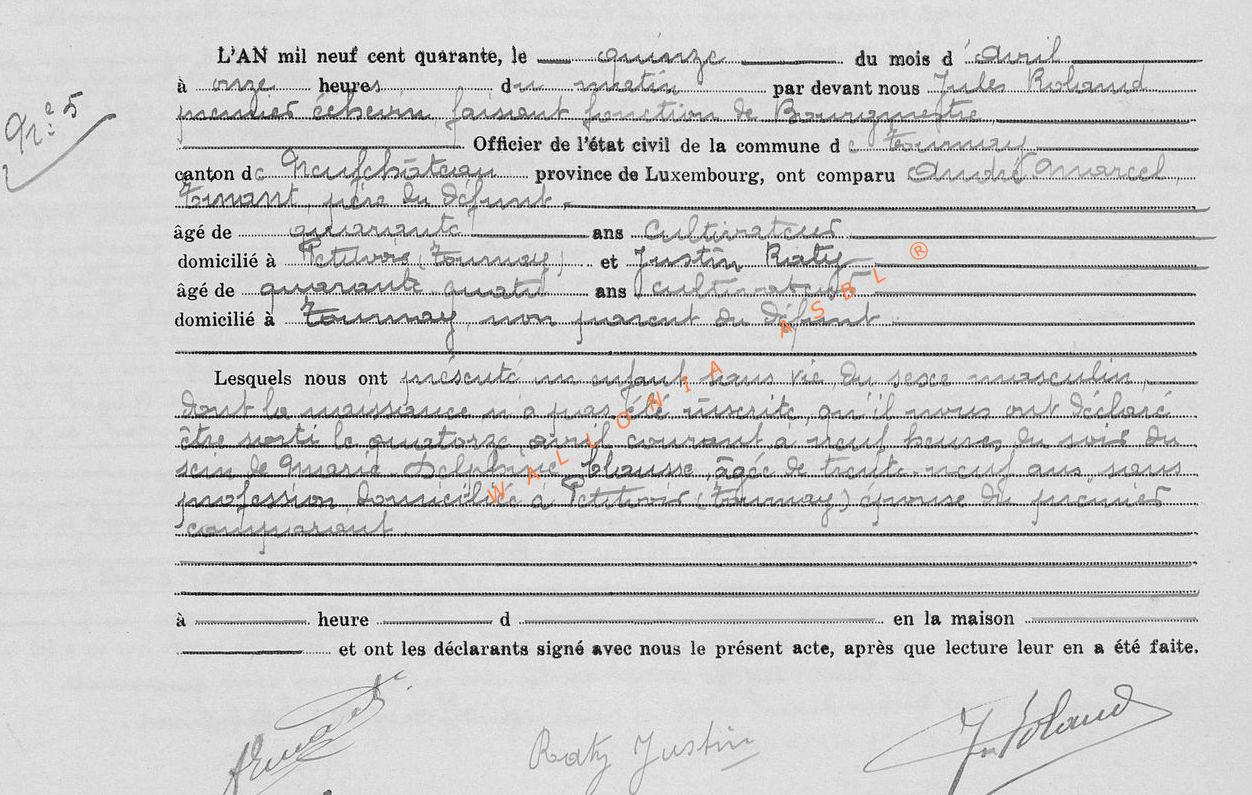 N° 5
L'AN mil neuf cent quarante, le quinze du mois d'avril
à onze heures du matin par devant nous Jules Roland
premier échevin faisant fonction de Bourgmestre
Officier de l'état civil de la commune de Tournay
canton de Neufchâteau province de Luxembourg, ont comparu André Marcel
père du défunt
âgé de quarante ans cultivateur
domicilié à Petitvoir (Tournay) et Justin Raty
âgé de quarante quatre ans cultivateur
domicilié à Tournay, non parent du défunt
Lesquels nous ont présenté un enfant sans vie, du sexe masculin,
dont la naissance n'a pas été inscrite, qu'il nous ont déclaré
être sorti le quatorze avril courant à neuf heures du soir du
sein de Marie Delphine Clausse, âgée de trente-neuf ans, sans
profession, domiciliée à Petitvoir (Tournay) épouse du premier
comparant
à heure d en la maison
et ont les déclarants signé avec nous le présent acte, après que lecture leur en a été faite.
Raty Justin
J Roland
WALLONIA ASBL ®